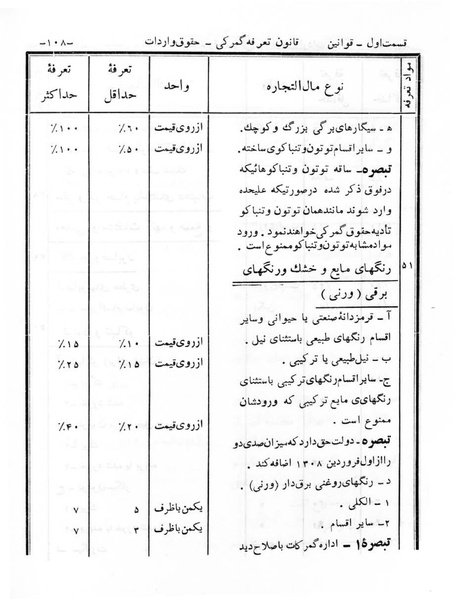 قسمت اول ـ قوانین قانون تعرفه گمرکی ـ حقوق واردات ـ۱۰۸ـ
مواد تعرفه نوع مال التجاره واحد تعرفهٔ حداقل تعرفهٔ حداکثر
ه‍ ـ سیگارهای برگی بزرگ و کوچک. از روی قیمت ٪۶۰ ٪۱۰۰
و ـ سایر اقسام توتون و تنباکوی ساخته. از روی قیمت ٪۵۰ ٪۱۰۰
تبصره ـ ساقه توتون و تنباکو هائیکه
در فوق ذکر شده در صورتیکه علیحده
وارد شوند مانند همان توتون و تنباکو
تأدیه حقوق گمرکی خواهند نمود. ورود
مواد مشابه توتون و تنباکو ممنوع است.
۵۱ رنگهای مایع و خشك و رنگهای
برقی (ورنی)
آ ـ قرمزدانهٔ صنعتی یا حیوانی و سایر
اقسام رنگهای طبیعی باستثنای نیل. از روی قیمت ٪۱۰ ٪۱۵
ب ـ نیل طبیعی یا ترکیبی. از روی قیمت ٪۱۵ ٪۲۵
ج ـ سایر اقسام رنگهای ترکیبی باستثنای
رنگهای‌ی مایع ترکیبی که ورودشان
ممنوع است. از روی قیمت ٪۲۰ ٪۴۰
تبصره ـ دولت حق دارد که میزان صدی دو
را از اول فروردین ۱۳۰۸ اضافه کند.
د ـ رنگهای روغنی برق دار (ورنی).
۱ ـ الکلی. یکمن با ظرف ۵ ۷
۲ ـ سایر اقسام. یکمن با ظرف ۳ ۷
تبصرهٔ ۱ ـ اداره گمرکات با صلاح دید